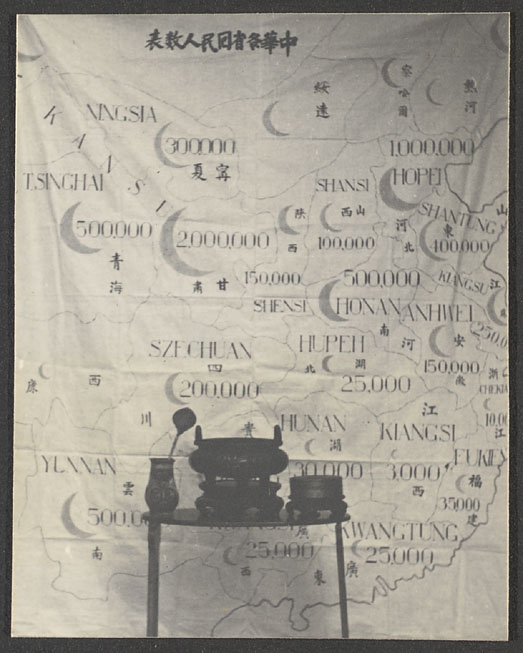 中華各省回民人數表
熱河
綏遠
NINGSIA
300,000
寧夏
1,000,000
KANSU
HOPEI
河北
TSINGHAI
SHANSI
山西
SHANTUNG
山東
500,000
2,000,000
陝西
100,000
400,000
青海
甘肅
150,000
500,000
KIANGSU
江
SHENSI
HONAN
河南
ANHWEI
安徽
250,0
SZECHUAN
四川
HUPEH
湖北
150,000
浙江
200,000
25,000
CHEKIA
西康
10,00
HUNAN
湖
KIANGSI
江西
YUNNAN
雲南
貴
30,000
3,000
FUKIEN
福建
500,0
35000
廣西
KWANGTUNG
廣東
25,000
25,000